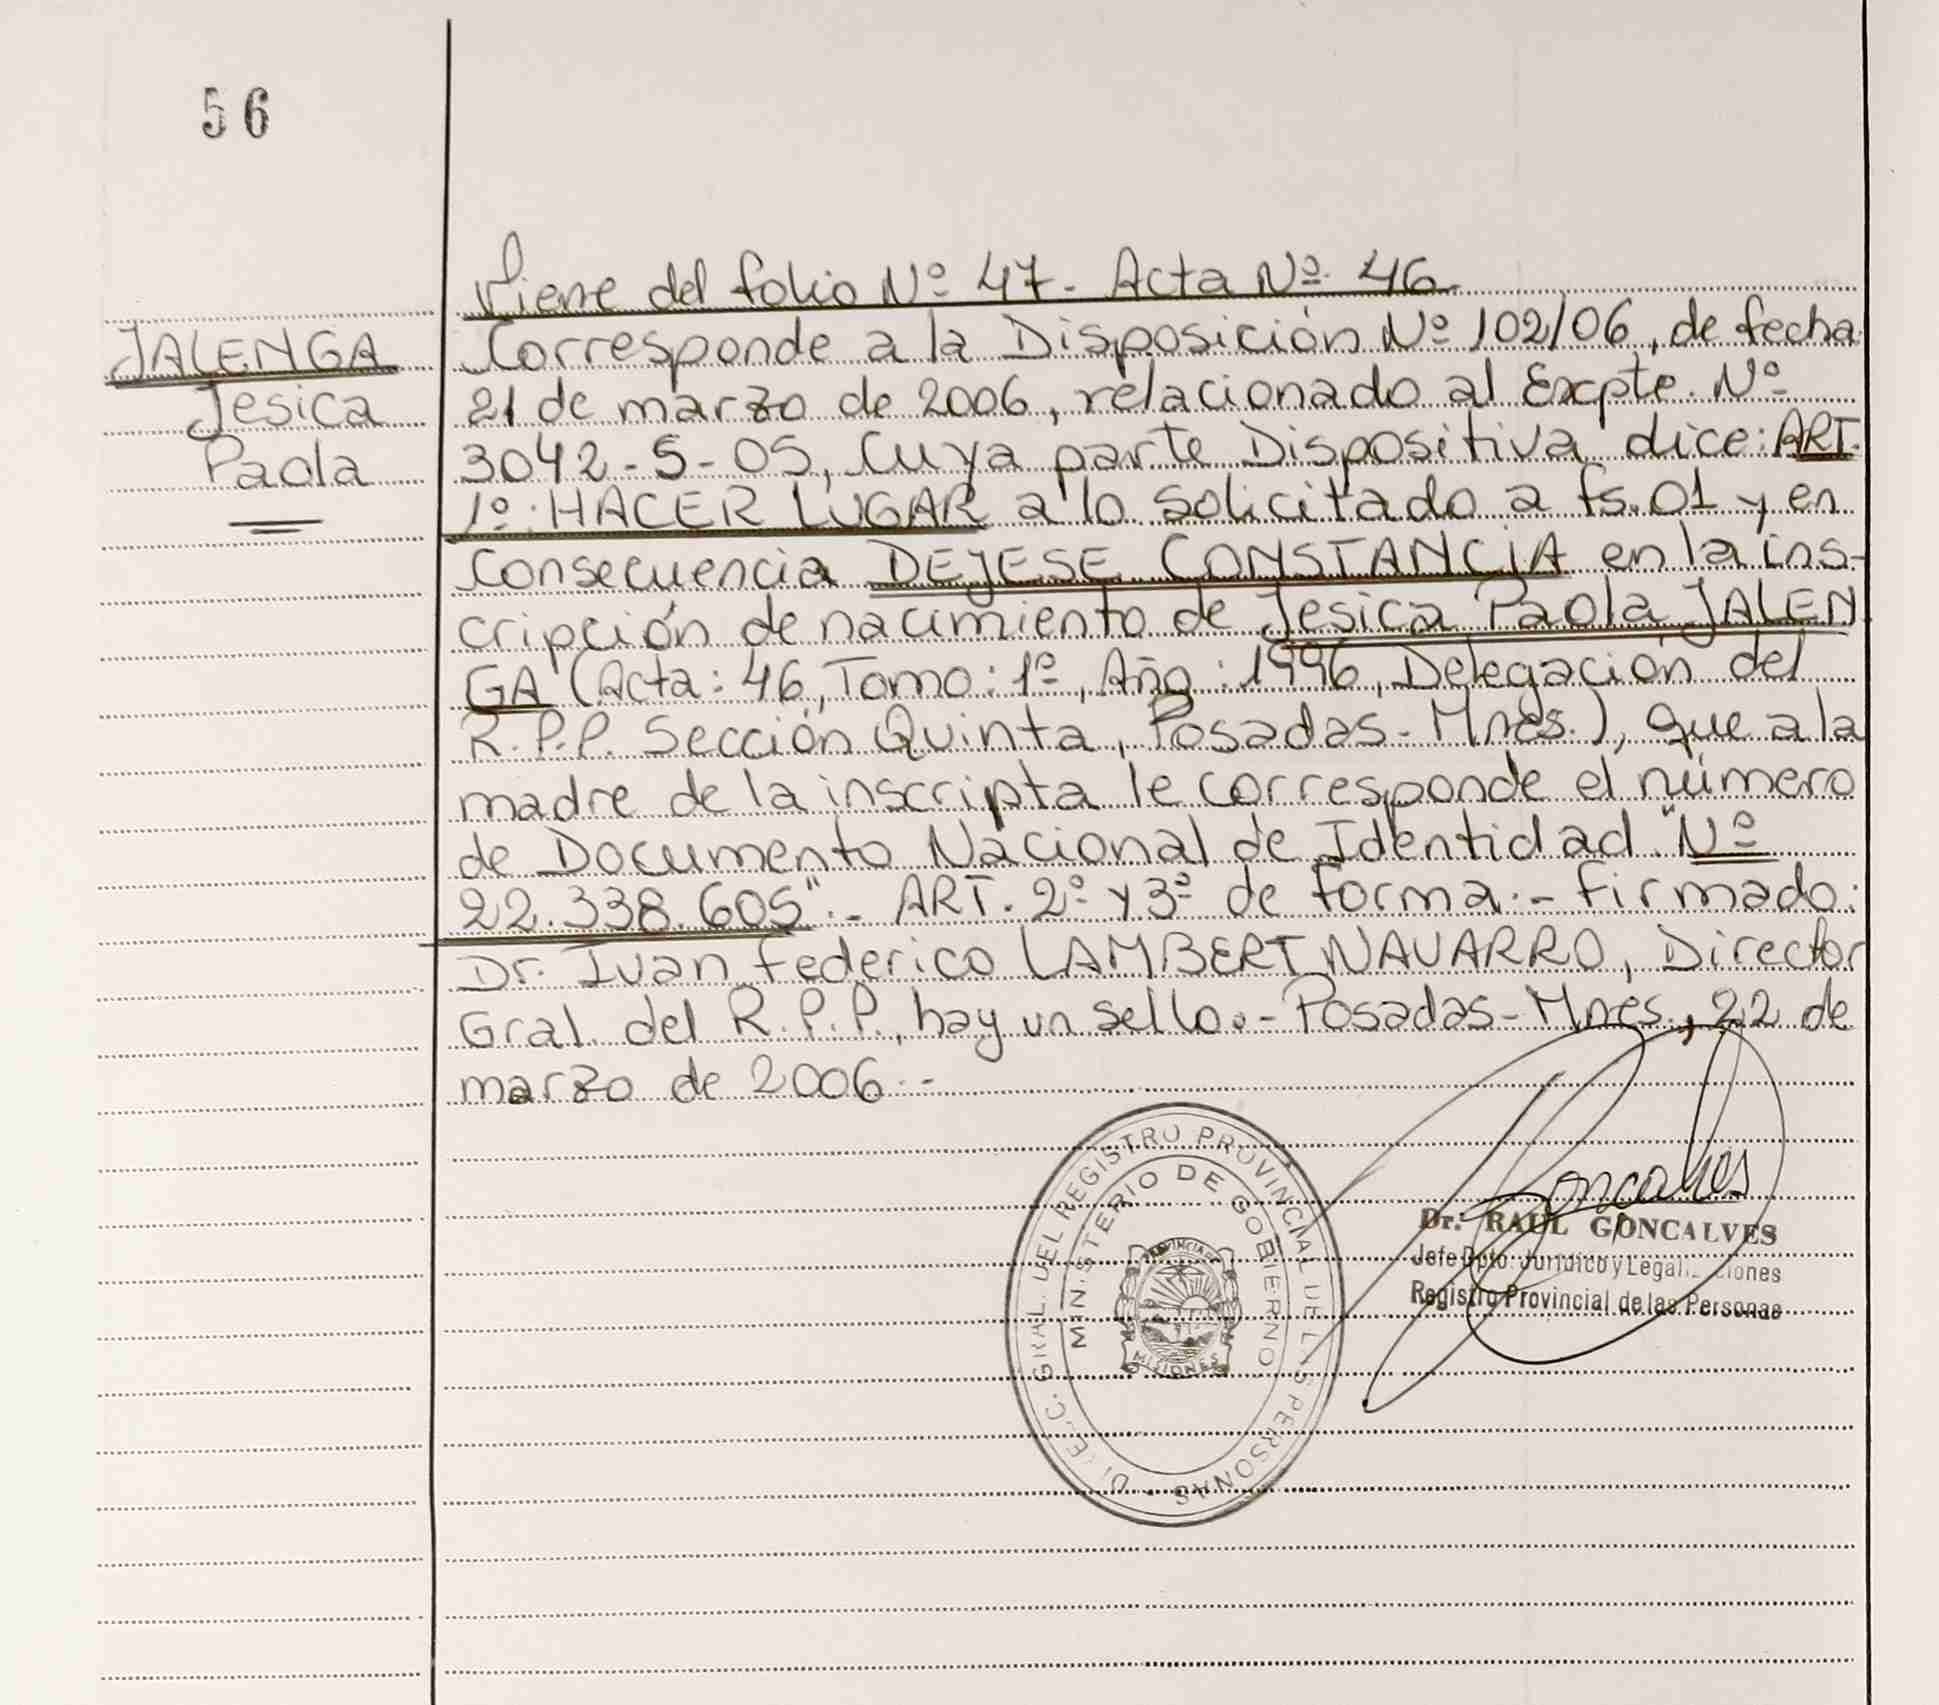 56
Viene del folio Nº 47. Acta Nº 46.
JALENGA
Jesica
Paola
Corresponde a la Disposición Nº 102/06, de fecha
21 de marzo de 2006, relacionado al Excpte. Nº
3042-S-05, Cuya parte Dispositiva dice: ART.
1º. HACER LUGAR a lo solicitado a fs. 01 y en
Consecuencia DEJESE CONSTANCIA en la ins-
cripción de nacimiento de Jesica Paola JALEN
GA (Acta: 46, Tomo: 1º, Año: 1996, Delegación del
R.P.P. Sección Quinta, Posadas-Mnes.), que a la
madre de la inscripta le corresponde el número
de Documento Nacional de Identidad "Nº
22.338.605".- ART. 2º y 3º de forma.- Firmado:
Dr. Ivan Federico LAMBERT NAVARRO, Director
Gral. del R.P.P., hay un sello.- Posadas-Mnes., 22 de
marzo de 2006.-
DIREC. GRAL. DEL REGISTRO PROVINCIAL DE LAS PERSONAS
MINISTERIO DE GOBIERNO
PROVINCIA DE
MISIONES
Goncalves
Dr. RAUL GONCALVES
Jefe Dpto. Jurídico y Legalizaciones
Registro Provincial de las Personas